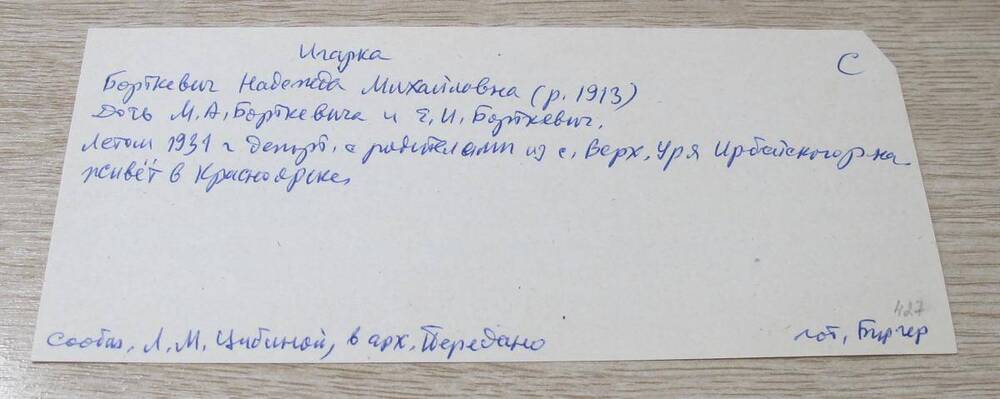 Игарка
С
Борткевич Надежда Михайловна (р. 1913)
Дочь М.А. Борткевича и Е.И. Борткевич.
Летом 1931 г депорт. с родителями из с. Верх. Уря Ирбейского р-на
живёт в Красноярске.
427
Сообщ. Л.М. Цибиной, в арх. Передано
гот. Биргер